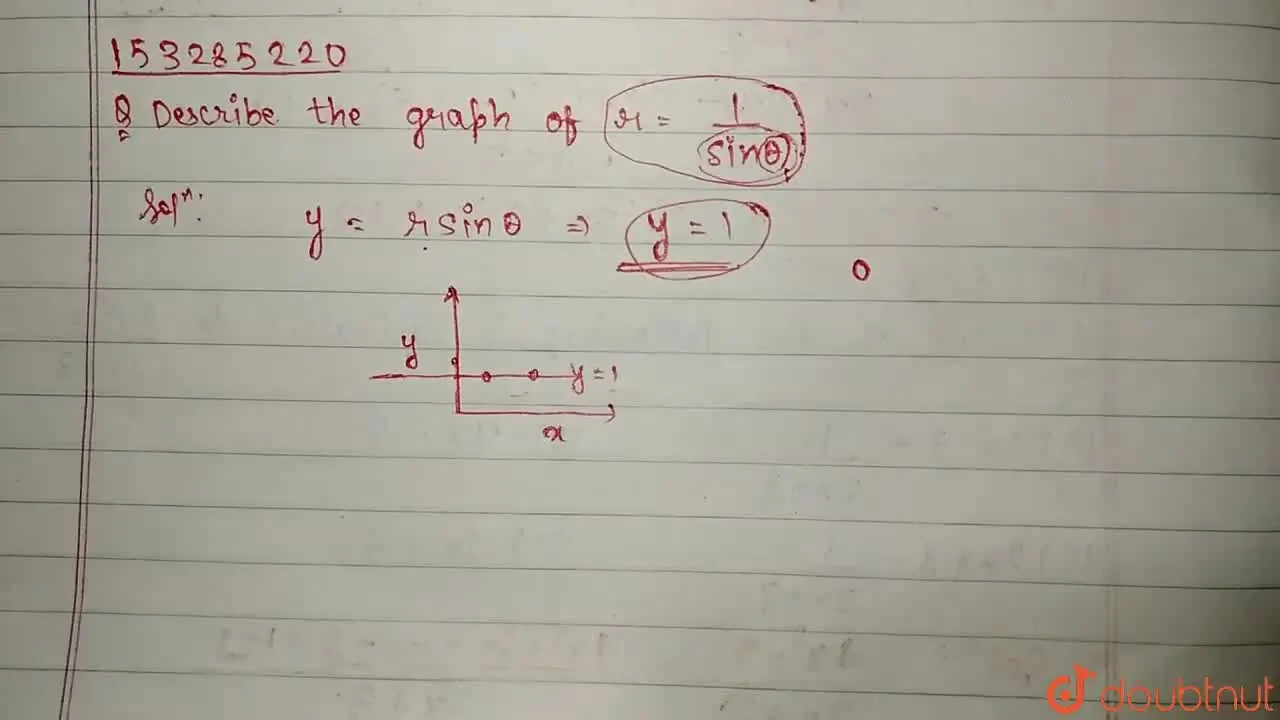 153285220
Q Describe the graph of r = 1/sinθ
Solⁿ:
y = r sinθ ⇒ y = 1
0
y
y = 1
x
doubtnut